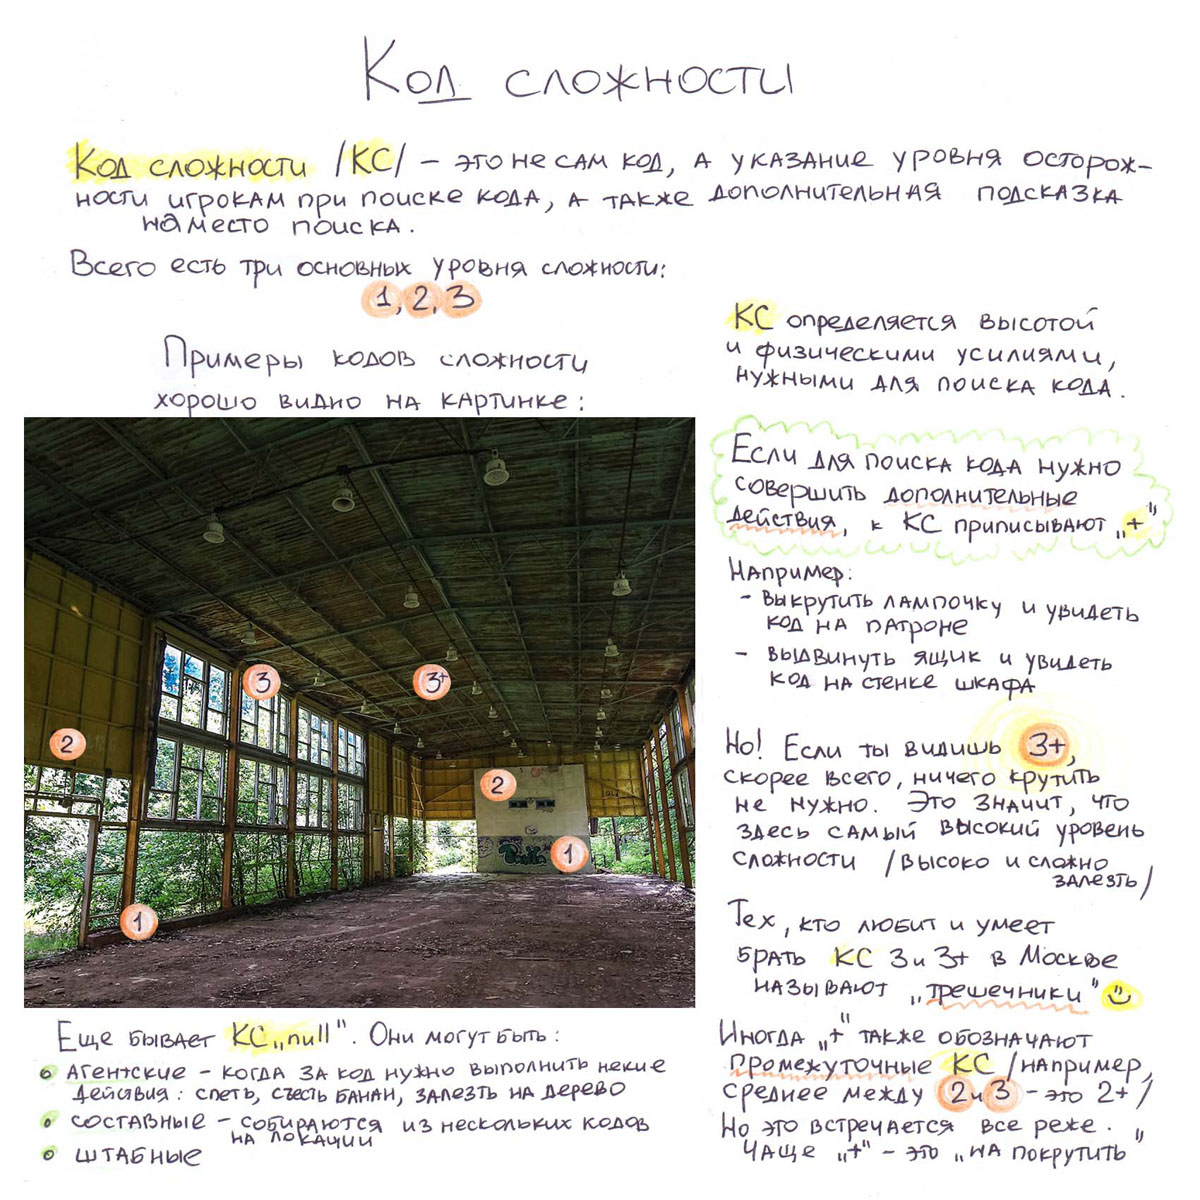 Код сложности
Код сложности /КС/ – это не сам код, а указание уровня осторож-
ности игрокам при поиске кода, а также дополнительная подсказка
на место поиска.
Всего есть три основных уровня сложности:
1, 2, 3
Примеры кодов сложности
хорошо видно на картинке:
3
3+
2
2
1
1
КС определяется высотой
и физическими усилиями,
нужными для поиска кода.
Если для поиска кода нужно
совершить дополнительные
действия, к КС приписывают „+"
Например:
- выкрутить лампочку и увидеть
код на патроне
- выдвинуть ящик и увидеть
код на стенке шкафа
Но! Если ты видишь 3+,
скорее всего, ничего крутить
не нужно. Это значит, что
здесь самый высокий уровень
сложности /высоко и сложно
залезть/
Тех, кто любит и умеет
брать КС 3 и 3+ в Москве
называют „трешечники"
Иногда „+" также обозначают
промежуточные КС /например,
среднее между 2 и 3 - это 2+/
Но это встречается все реже.
Чаще „+" - это „на покрутить"
Еще бывает КС „null". Они могут быть:
Агентские - когда за код нужно выполнить некие
действия: спеть, съесть банан, залезть на дерево
составные - собираются из нескольких кодов
на локации
штабные